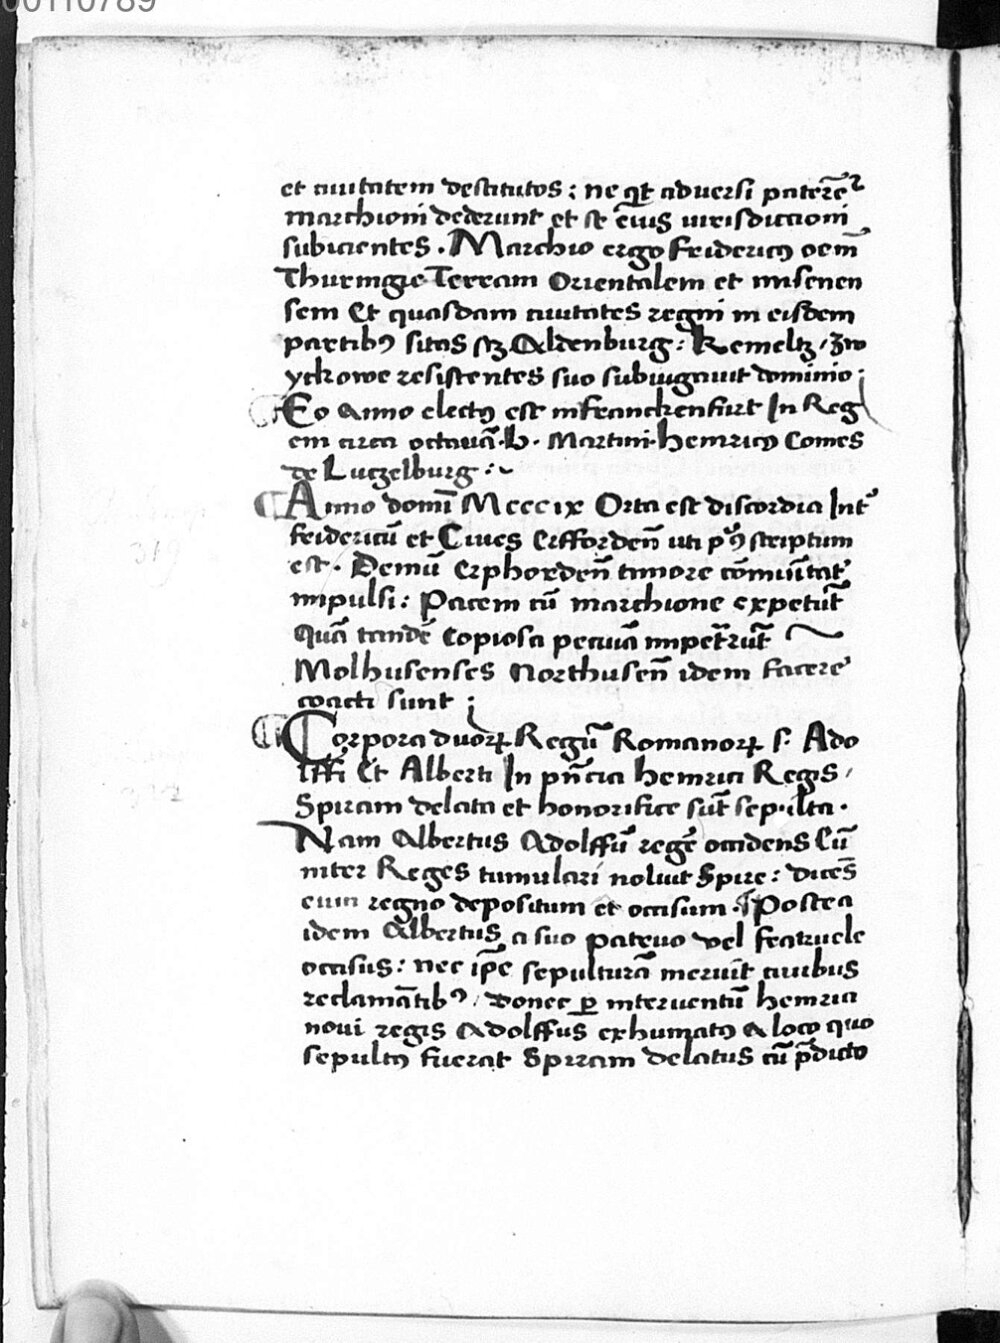 00110789
et ciuitatem destitutos : ne qͥt aduersi paterēt᷑
marchioni dederunt et se eiuꝰ iurisdictioni
subicientes . Marchio ergo fridericꝰ oēm
Thuringie Terram Orientalem et misenen
sem Et quasdam ciuitates regni in eisdem
partibꝰ sitas sꝫ Aldenburg : Kemeltz / zw
yckowe resistentes suo subiugauit dominio :
Eo Anno electꝰ est in franckenfurt In Reg
em circa octauā . b . Martini . henricꝰ Comes
de Lutzelburg :
Anno domī Mcccix Orta est discordia Int᷑
fridericū et Ciues Erffordeñ uti pꝰ scriptum
est . Demū Erphordeñ timore cōmuītat᷑
impulsi : Pacem cū marchione expetūt
Quā tandē copiosa pecuīa impetrrūt
Molhusenses Northuseñ idem facere
coacti sunt ;
Corpora duoꝝ Regū Romanoꝝ s . Ado
lffi Et Alberti In pn̄cia henrici Regis /
Spiram delata et honorifice sūt sepulta .
Nam Albertus Adolffū regē occidens Cū
inter Reges tumulari noluit Spire : dicēs
eum regno depositum et occisum . Postea
idem Albertus a suo patruo vel fratruele
occisus : nec ip̄e sepulturā meruit ciuibus
reclamātibꝰ / donec ꝑ interuentū henrici
noui regis Adolffus exhumatꝰ a loco quo
sepultꝰ fuerat Spiram delatus cū p̄dicto
319